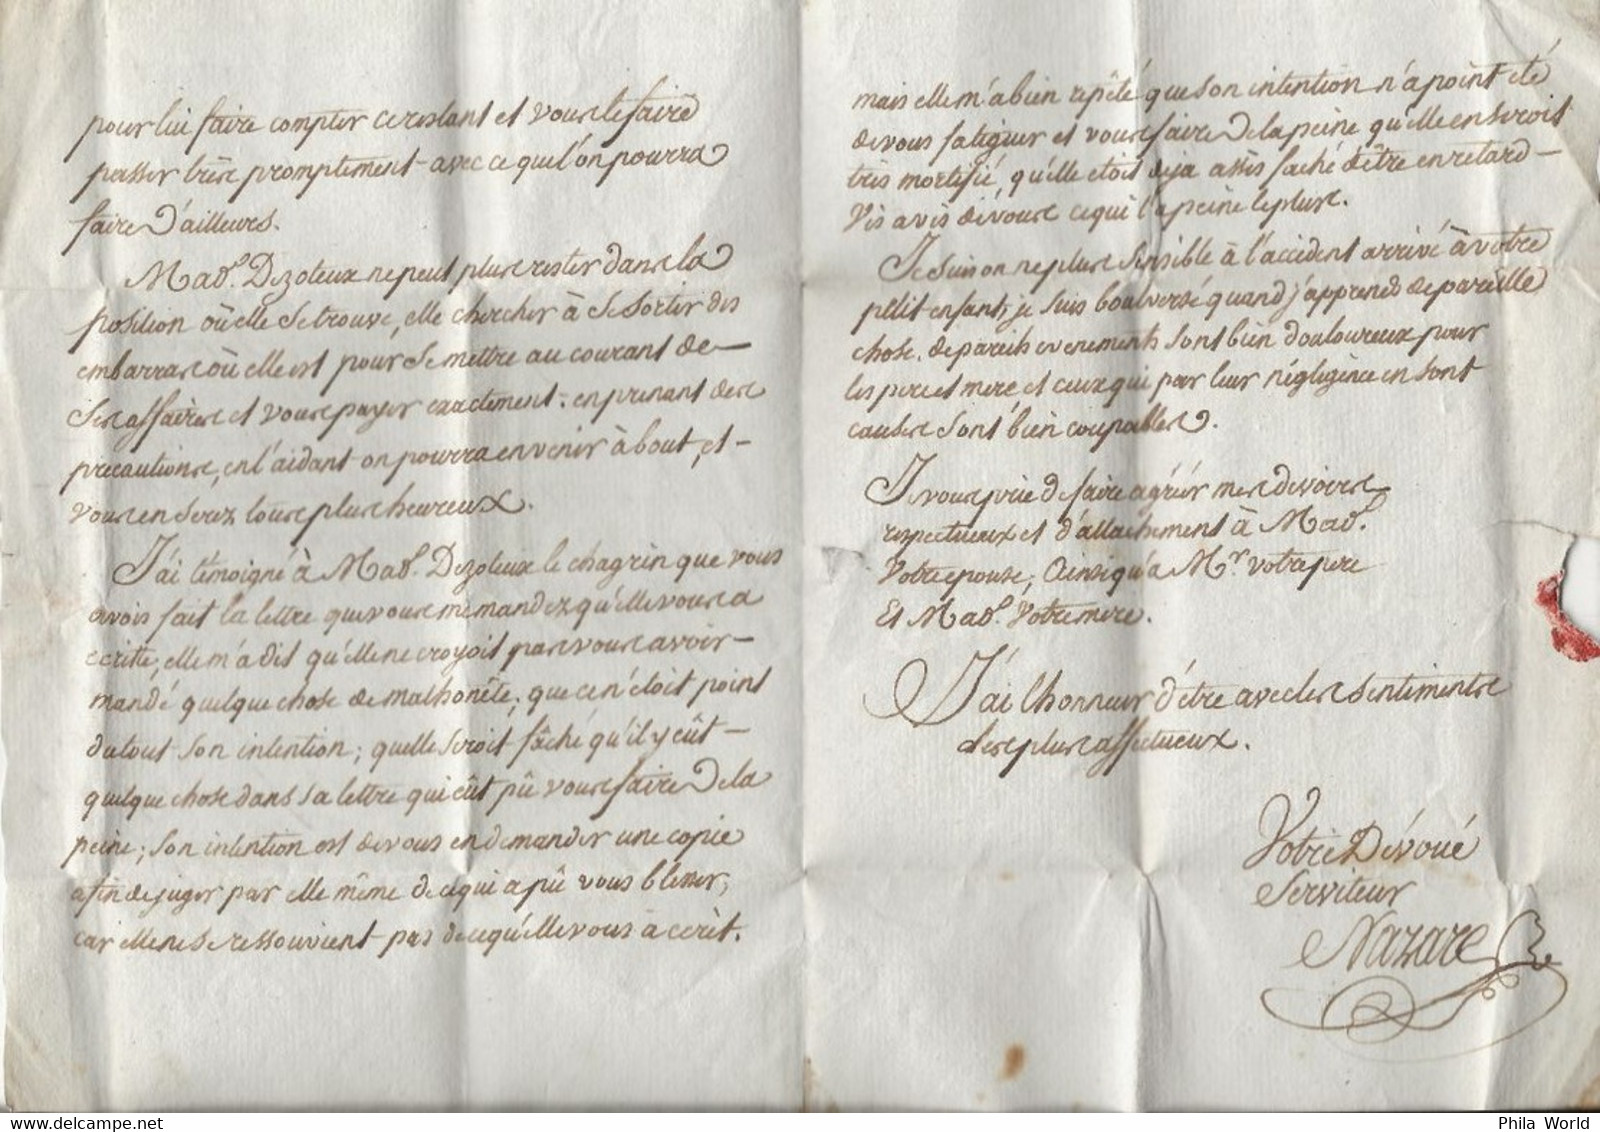 pour lui faire compter ce restant et vous le faire
passer très promptement avec ce que l'on pourra
faire d'ailleurs.
Mad.e Dezoteux ne peut plus rester dans la
position où elle se trouve, elle chercher à se sortir des
embarras où elle est pour se mettre au courant de
ses affaires et vous payer exactement. en prenant des
précautions, en l'aidant on pourra en venir à bout, et
vous en serez tous plus heureux.
J'ai témoigné à Mad.e Dezoteux le chagrin que vous
avois fait la lettre que vous me mandez qu'elle vous a
écritte, elle m'a dit qu'elle ne croyoit pas vous avoir
mandé quelque chose de malhonête, que ce n'étoit point
du tout son intention; quelle seroit fâché qu'il y eût
quelque chose dans sa lettre qui eût pû vous faire de la
peine; son intention est de vous en demander une copie
afin de juger par elle même de ce qui a pû vous blesser,
car elle ne se ressouvient pas de ce qu'elle vous à écrit.
mais elle m'a bien repêté que son intention n'a point été
de vous fatiguer et vous faire de la peine qu'elle en seroit
très mortifié, qu'elle etoit deja assés faché d'être en retard
vis a vis de vous ce qui l'a peine le plus.
Je suis on ne plus sensible à l'accident arrivé à votre
petit enfant, je suis boulversé quand j'apprend de pareille
chose. de pareils evenements sont bien douloureux pour
les pere et mere et ceux qui par leur négligence en sont
causes sont bien coupables.
Je vous prie de faire agréer mes devoirs
respectueux et d'attachement à Mad.e
votre epouse, ainsi qu'à M.r votre pere
Et Mad.e votre mere.
J'ai l'honneur d'être avec les sentiments
les plus affectueux.
Votre Dévoué
Serviteur
Nazare
Phila World